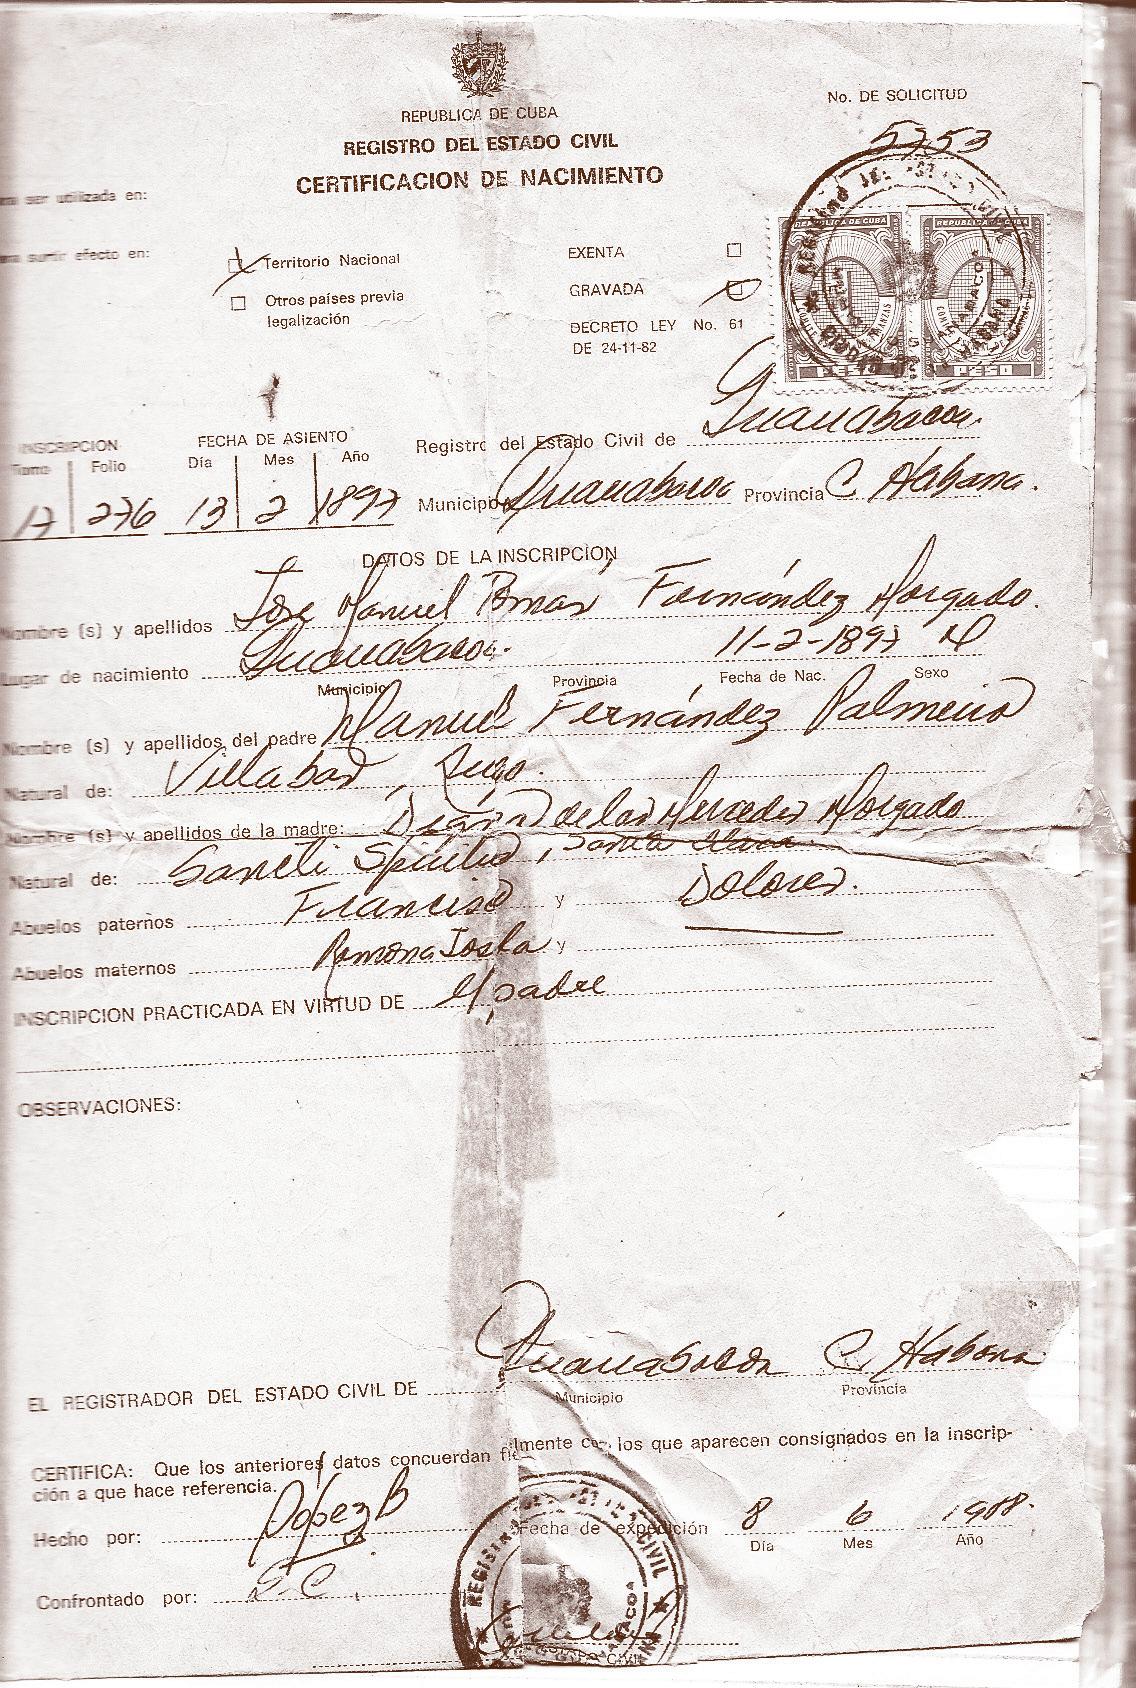 REPUBLICA DE CUBA
REGISTRO DEL ESTADO CIVIL
CERTIFICACION DE NACIMIENTO
No. DE SOLICITUD
5753
ser utilizada en:
surtir efecto en:
Territorio Nacional
Otros países previa
legalización
EXENTA
GRAVADA
DECRETO LEY No. 61
DE 24-11-82
REPUBLICA DE CUBA REPUBLICA DE CUBA
PESO PESO
INSCRIPCION FECHA DE ASIENTO
Tomo Folio Día Mes Año
17 276 13 2 1897
Registro del Estado Civil de Guanabacoa
Municipio Guanabacoa Provincia C. Habana.
DATOS DE LA INSCRIPCION
Nombre (s) y apellidos José Manuel Tomás Fernández Morgado.
Lugar de nacimiento Guanabacoa. 11-2-1897 M
Municipio Provincia Fecha de Nac. Sexo
Nombre (s) y apellidos del padre Manuel Fernández Palmeiro
Natural de: Villabad, Lugo.
Nombre (s) y apellidos de la madre: de las Mercedes Morgado
Natural de: Sancti Spíritus, Santa Clara.
Abuelos paternos Francisco y Dolores.
Abuelos maternos Ramona y
INSCRIPCION PRACTICADA EN VIRTUD DE el padre
OBSERVACIONES:
Guanabacoa C. Habana
EL REGISTRADOR DEL ESTADO CIVIL DE
Municipio Provincia
CERTIFICA: Que los anteriores datos concuerdan fielmente con los que aparecen consignados en la inscrip-
ción a que hace referencia.
Hecho por: López B
Fecha de expedición 8 6 1988.
Día Mes Año
Confrontado por: S.C.
REGISTRO DEL ESTADO CIVIL
GUANABACOA